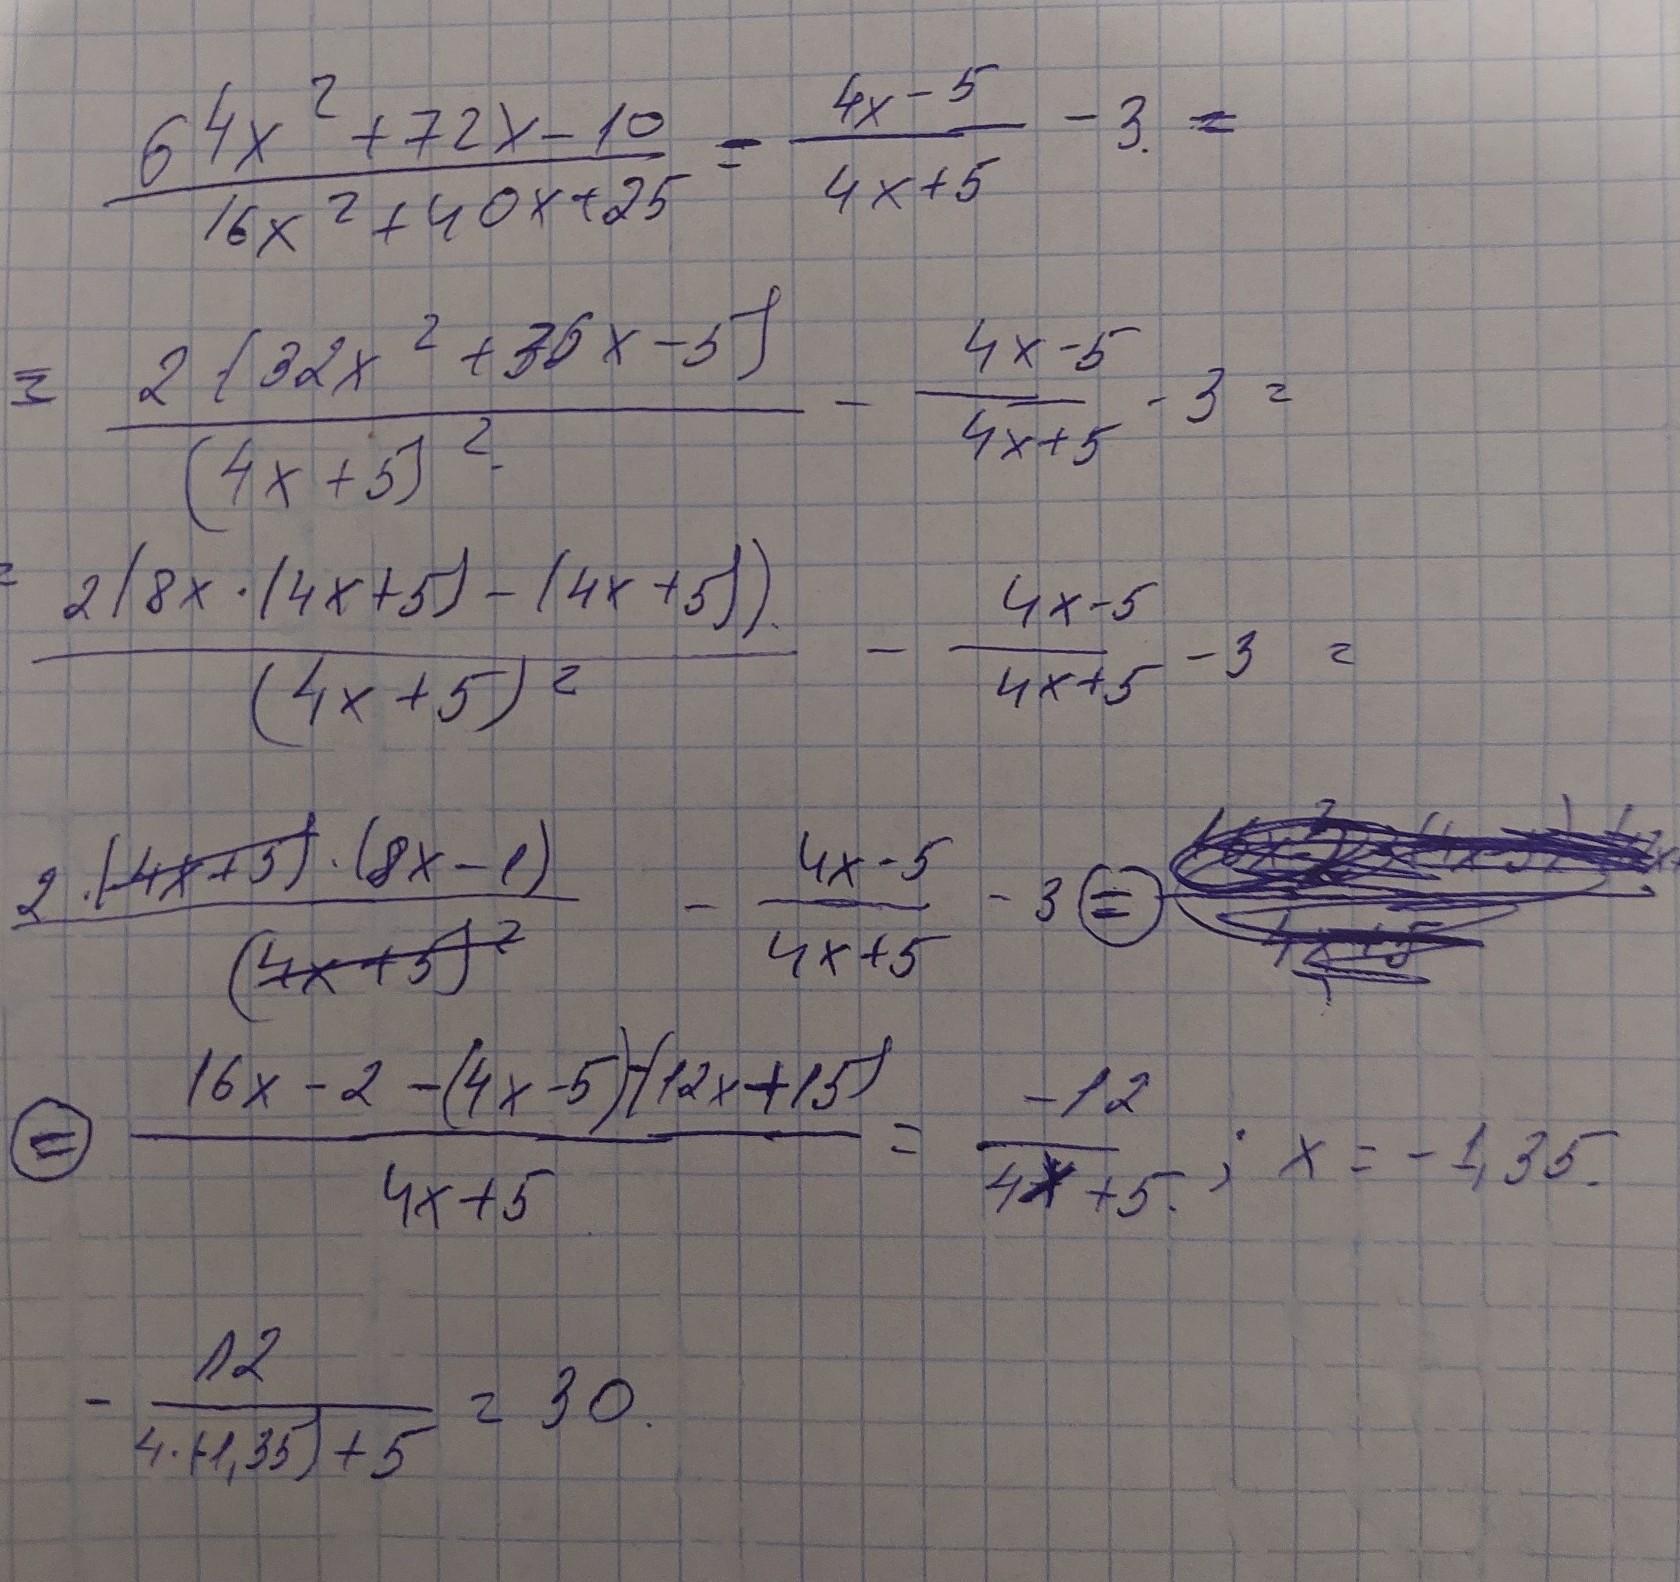 (64x² + 72x - 10)/(16x² + 40x + 25) = (4x - 5)/(4x + 5) - 3. =
= 2(32x² + 36x - 5)/(4x + 5)² - (4x - 5)/(4x + 5) - 3 =
= 2(8x·(4x + 5) - (4x + 5))/(4x + 5)² - (4x - 5)/(4x + 5) - 3 =
2·(4x + 5)·(8x - 1)/(4x + 5)² - (4x - 5)/(4x + 5) - 3 =
= (16x - 2 - (4x - 5) - (12x + 15))/(4x + 5) = -12/(4x + 5); x = -1,35.
- 12/(4·(-1,35) + 5) = 30.